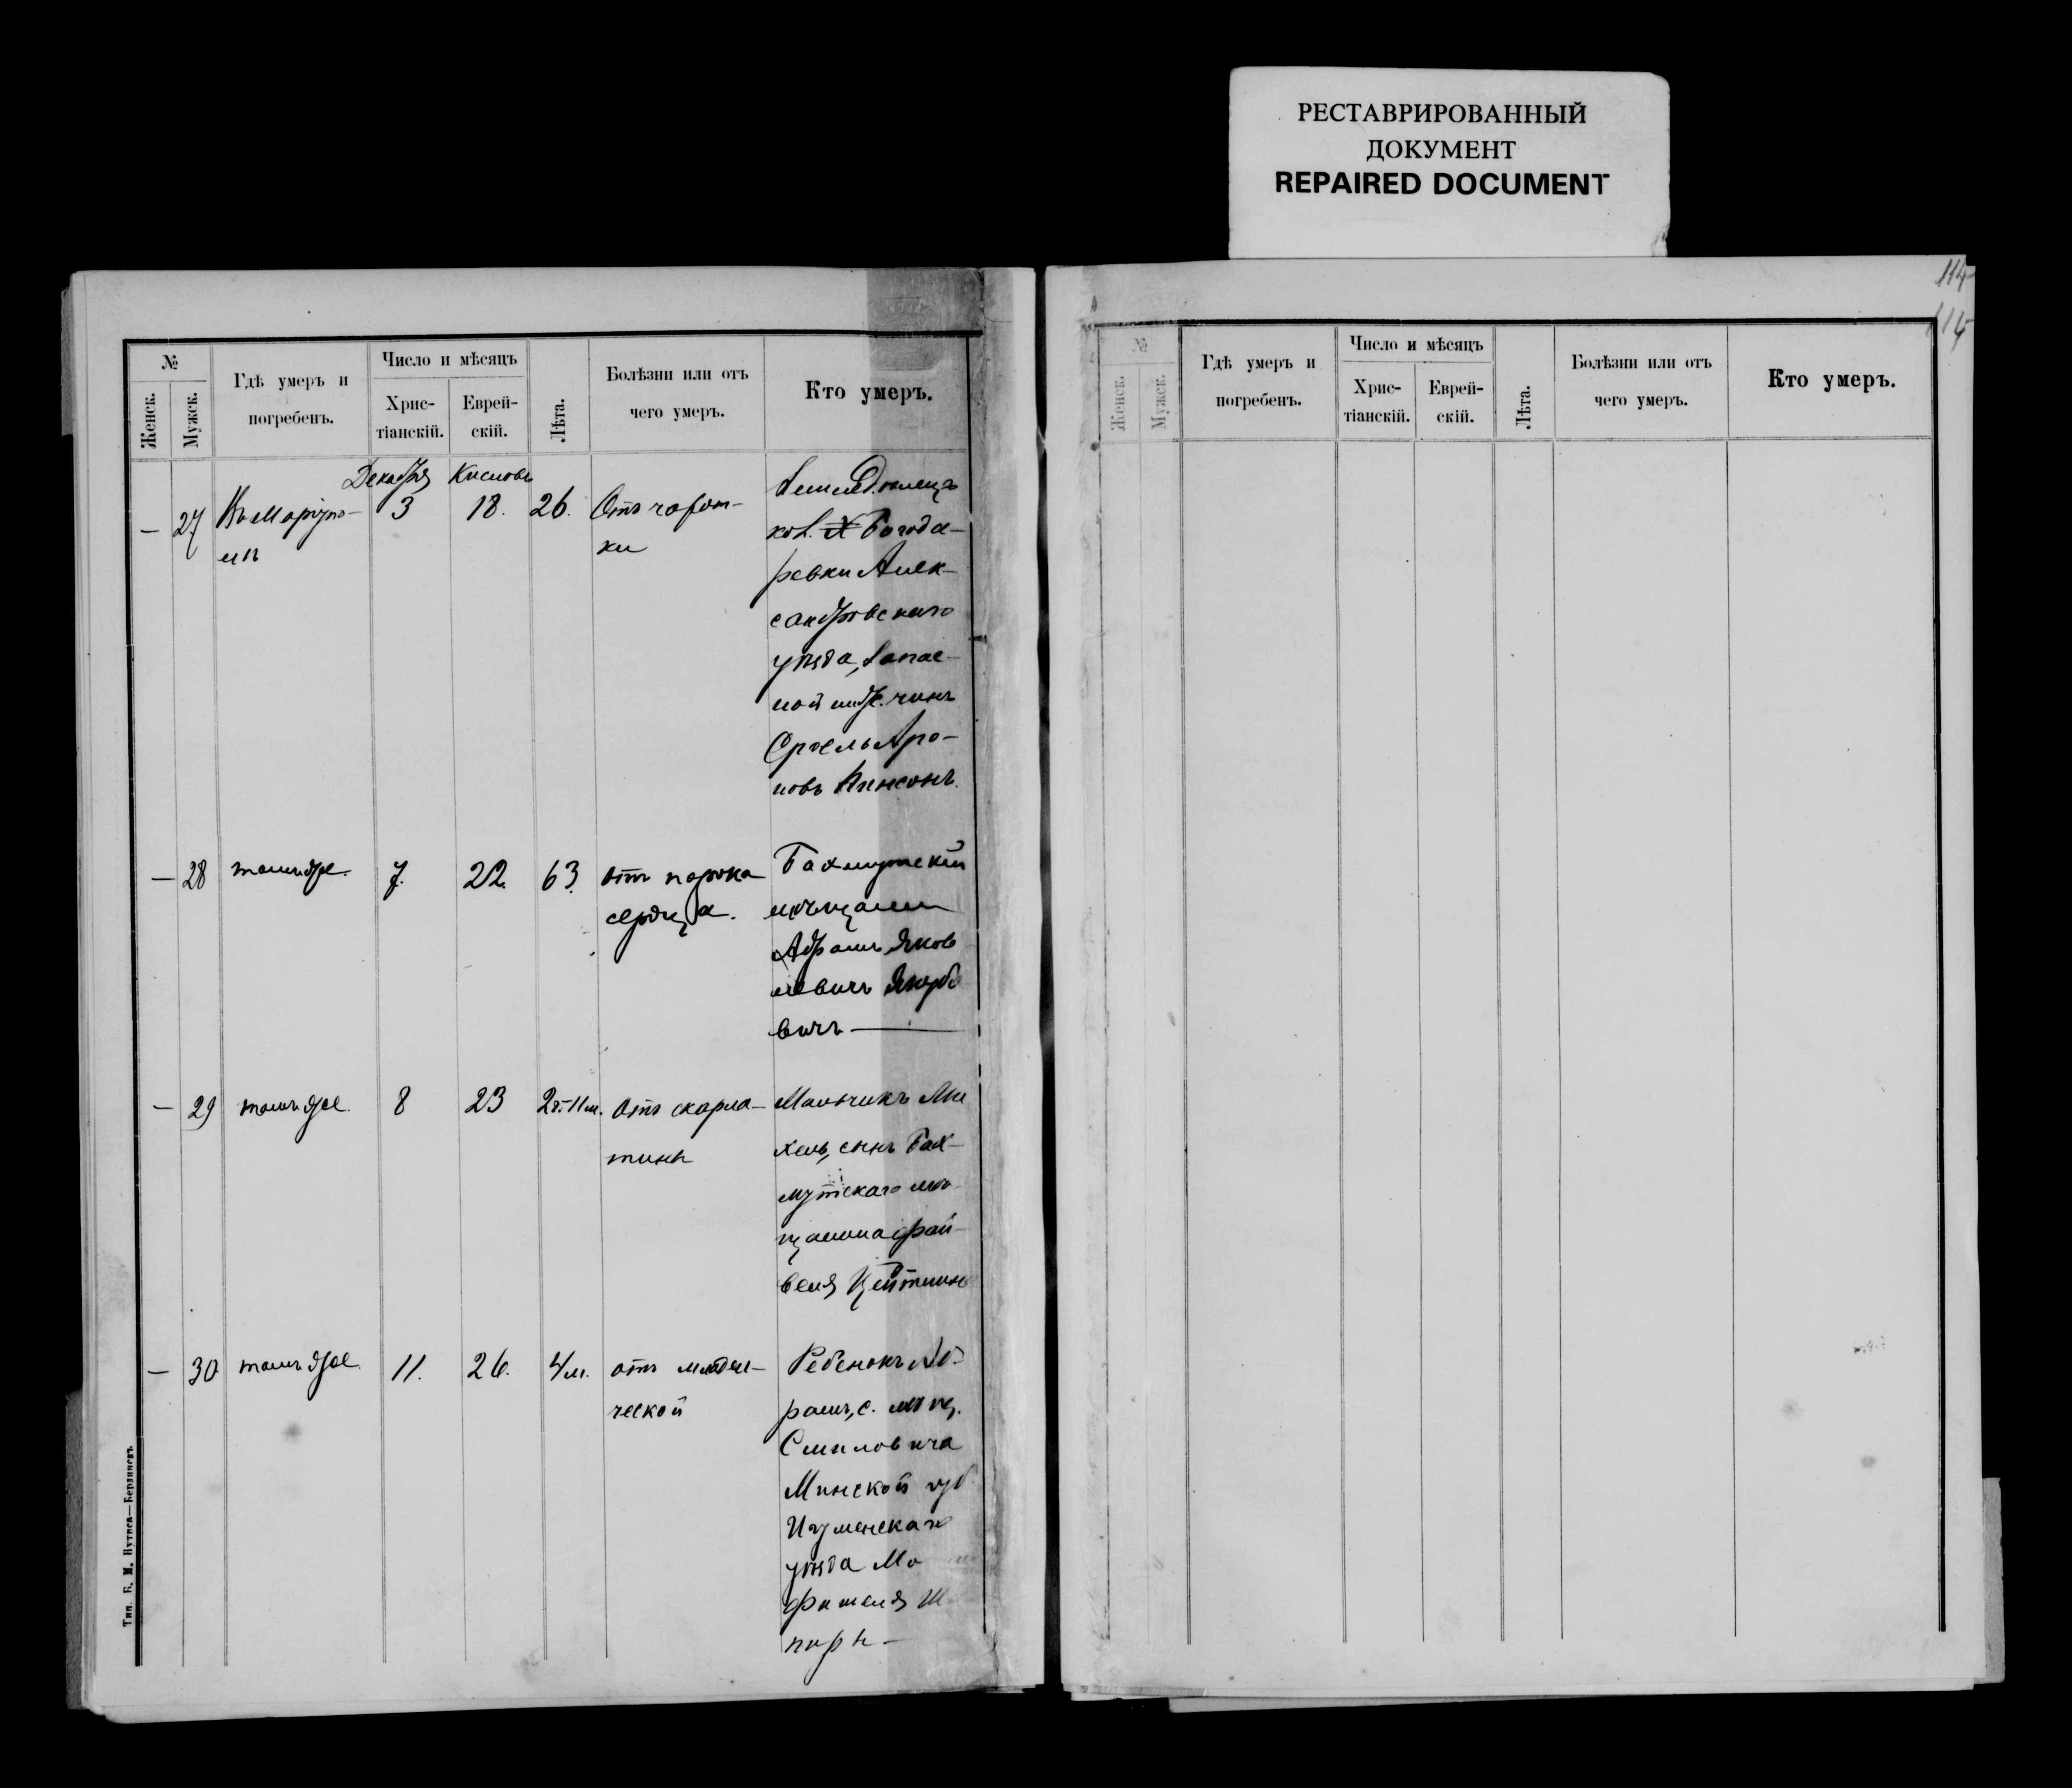 РЕСТАВРИРОВАННЫЙ
ДОКУМЕНТ
REPAIRED DOCUMENT
№
Женск.
Мужск.
Гдѣ умеръ и
погребенъ.
Число и мѣсяцъ
Хрис-
тіанскій.
Еврей-
скій.
Лѣта.
Болѣзни или отъ
чего умеръ.
Кто умеръ.
Декабря Кислова
— 27 Въ Маріупо-
лѣ
3 18. 26.
Отъ чахот-
ки
Землед. колец
кол. Богода-
ревки Алек-
сандровскаго
уѣзда, запас-
ной чинъ
Сроель Аро-
новъ
— 28 тамъ же. 7. 22. 63.
отъ порока
сердца.
Бахмутскій
мѣщанин
Абрамъ Яков
левичъ Якубо
вичъ —
— 29 тамъ же. 8 23 2г.-11м.
отъ скарла-
тины
Мальчикъ Ми
хель, сынъ Бах-
мутскаго мѣ-
щанина Фай-
веля Цейтлин
— 30 тамъ же. 11. 26. 4м.
отъ младен-
ческой
Ребенокъ Аб-
рамъ, с. мѣщ.
Смиловича
Минской губ
Игуменскаго
уѣзда Мо
фишеля Ш
пиры —
Тип. Б. М. Нутиса—Бердянскъ
114
114
№
Женск.
Мужск.
Гдѣ умеръ и
погребенъ.
Число и мѣсяцъ
Хрис-
тіанскій.
Еврей-
скій.
Лѣта.
Болѣзни или отъ
чего умеръ.
Кто умеръ.